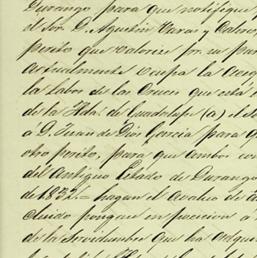 Durango para que notifique
el Sor D. Agustin Varas y Valero,
perito que valorize pr. su par
actualmente ocupa la
la Labor de las Cruces que está
de la Hda. de Guadalupe (a) el
a D. Juan de Dios Garcia para q
otro perito, para que ambos con
del Antiguo Estado de Durango
de 1832 hagan el avaluo de
cluido pongase en posecion á
de la Servidumbre que ha